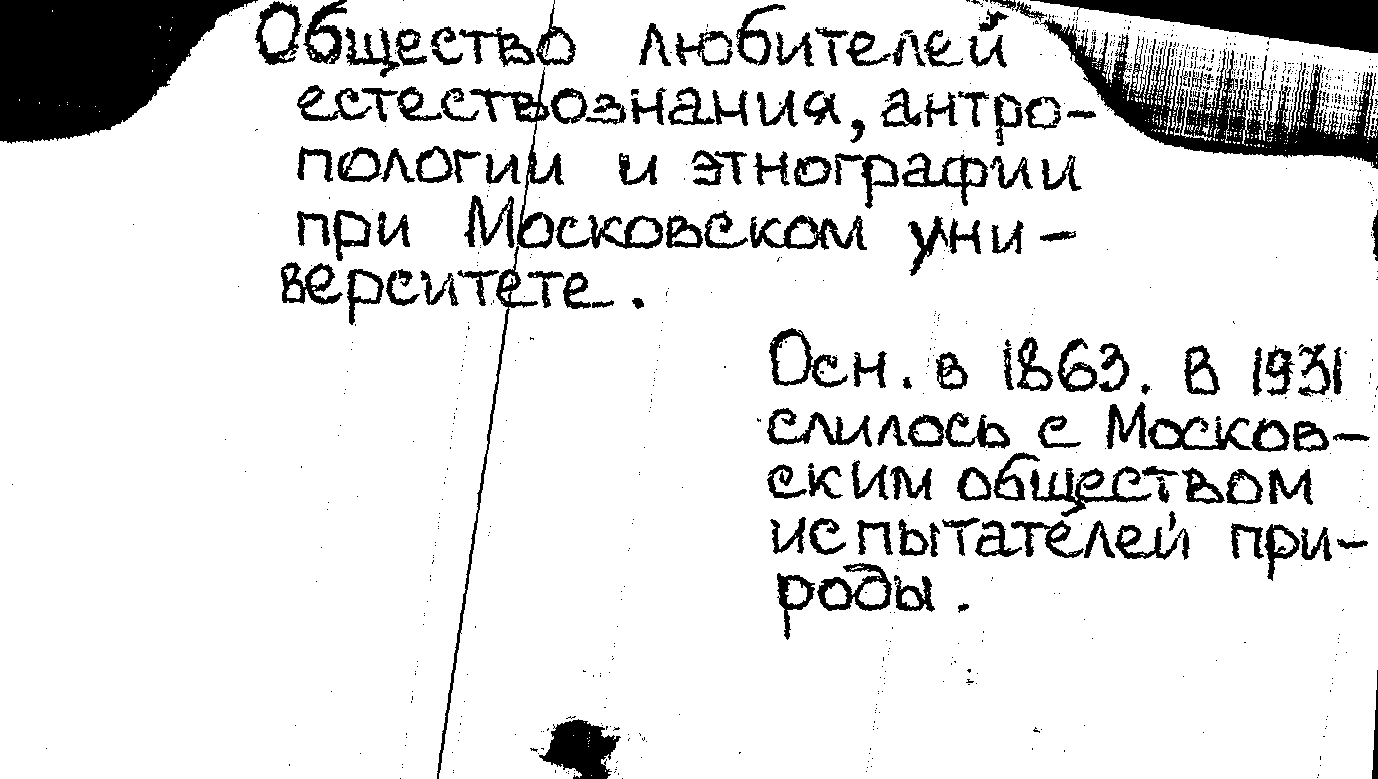 Общество любителей
естествознания, антро-
пологии и этнографии
при Московском уни-
верситете.
Осн. в 1863. В 1931
слилось с Москов-
ским обществом
испытателей при-
роды.